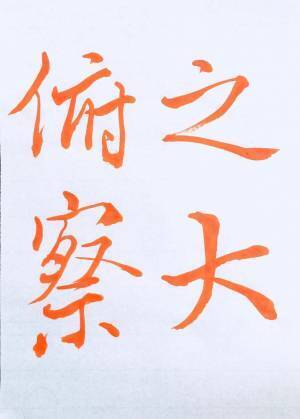 之大
俯察